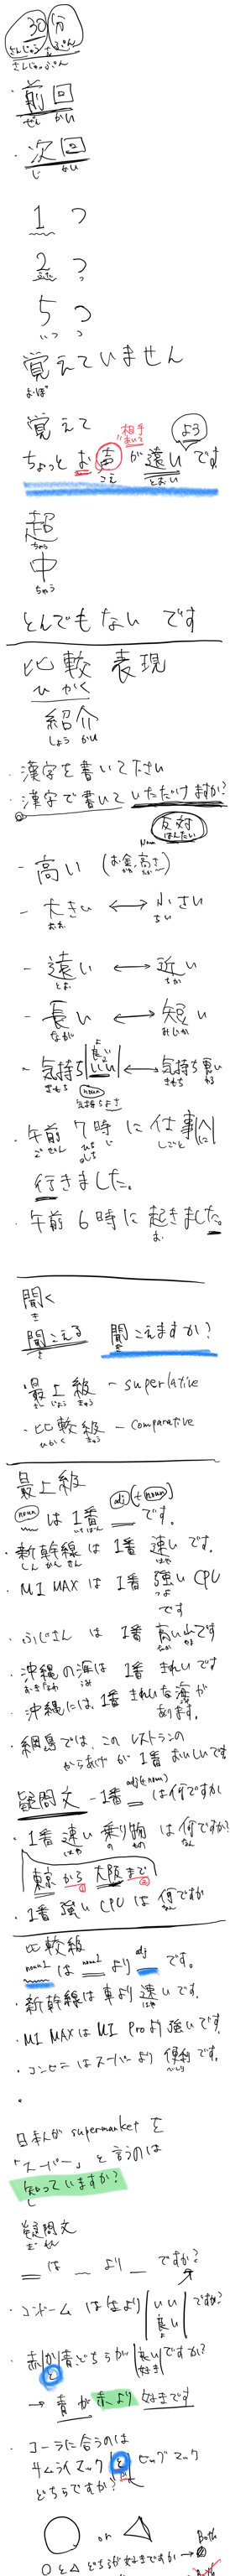 30分
さんじゅっぷん
さんじゅっぷん
・前回
ぜん かい
・次回
じ かい
1つ
2つ
ふた つ
5つ
いつ つ
覚えていません
おぼ
覚えて
相手
よる
ちょっと お声が遠いです
こえ とおい
超
ちょう
中
ちゅう
とんでもない です
比較 表現
ひ かく
紹介
しょう かい
・漢字を書いてください
・漢字で書いていただけますか?
反対
はんたい
Noun
- 高い (お金、高さ)
- 大きい ↔ 小さい
おお ちい
- 遠い ↔ 近い
とお ちか
- 長い ↔ 短い
なが みじか
良い
- 気持ちいい ↔ 気持ち悪い
きもち きもち わる
noun
気持ちよさ
・午前 7時に 仕事へ
に
ご ぜん しち じ しごと
行きました。
・午前 6時に 起きました。
お
聞く
き
聞こえる 聞こえますか?
き き
・最上級 - superlative
さい じょう きゅう
・比較級 - comparative
ひかく きゅう
最上級
noun は 1番 adj (+ noun) です。
いちばん
・新幹線は 1番 速いです。
しん かん せん はや
・M1 MAX は 1番 強い CPU
つよ
です
・ふじさん は 1番 高い山です
たか やま
・沖縄の海は 1番 きれいです
おきなわ うみ
・沖縄には、1番 きれいな海が
あります。
・綱島では、この レストランの
からあげ が 1番 おいしいです
adj(+noun)
疑問文 - 1番 は何ですか
・1番 速い 乗り物 は何ですか?
はや の もの なん
東京から 大阪まで
・1番 強い CPU は 何ですか
なん
比較級
noun1 は noun2 より adj です。
・新幹線は車より速いです。
・M1 MAX は M1 Pro より強いです。
・コンビニはスーパーより 便利です。
べんり
・
日本人が supermarket を
「スーパー」と言うのは
知っていますか?
し
疑問文
ぎ もん
は より ですか?
いい
良い
ですか?
・赤か青、どちらが 良い ですか?
と 好き
→ 青が 赤より 好きです
・コーラに合うのは
サムライマック と ビッグマック
どちらですか?
○ or △
Both
○と△ どちらが好きですか →